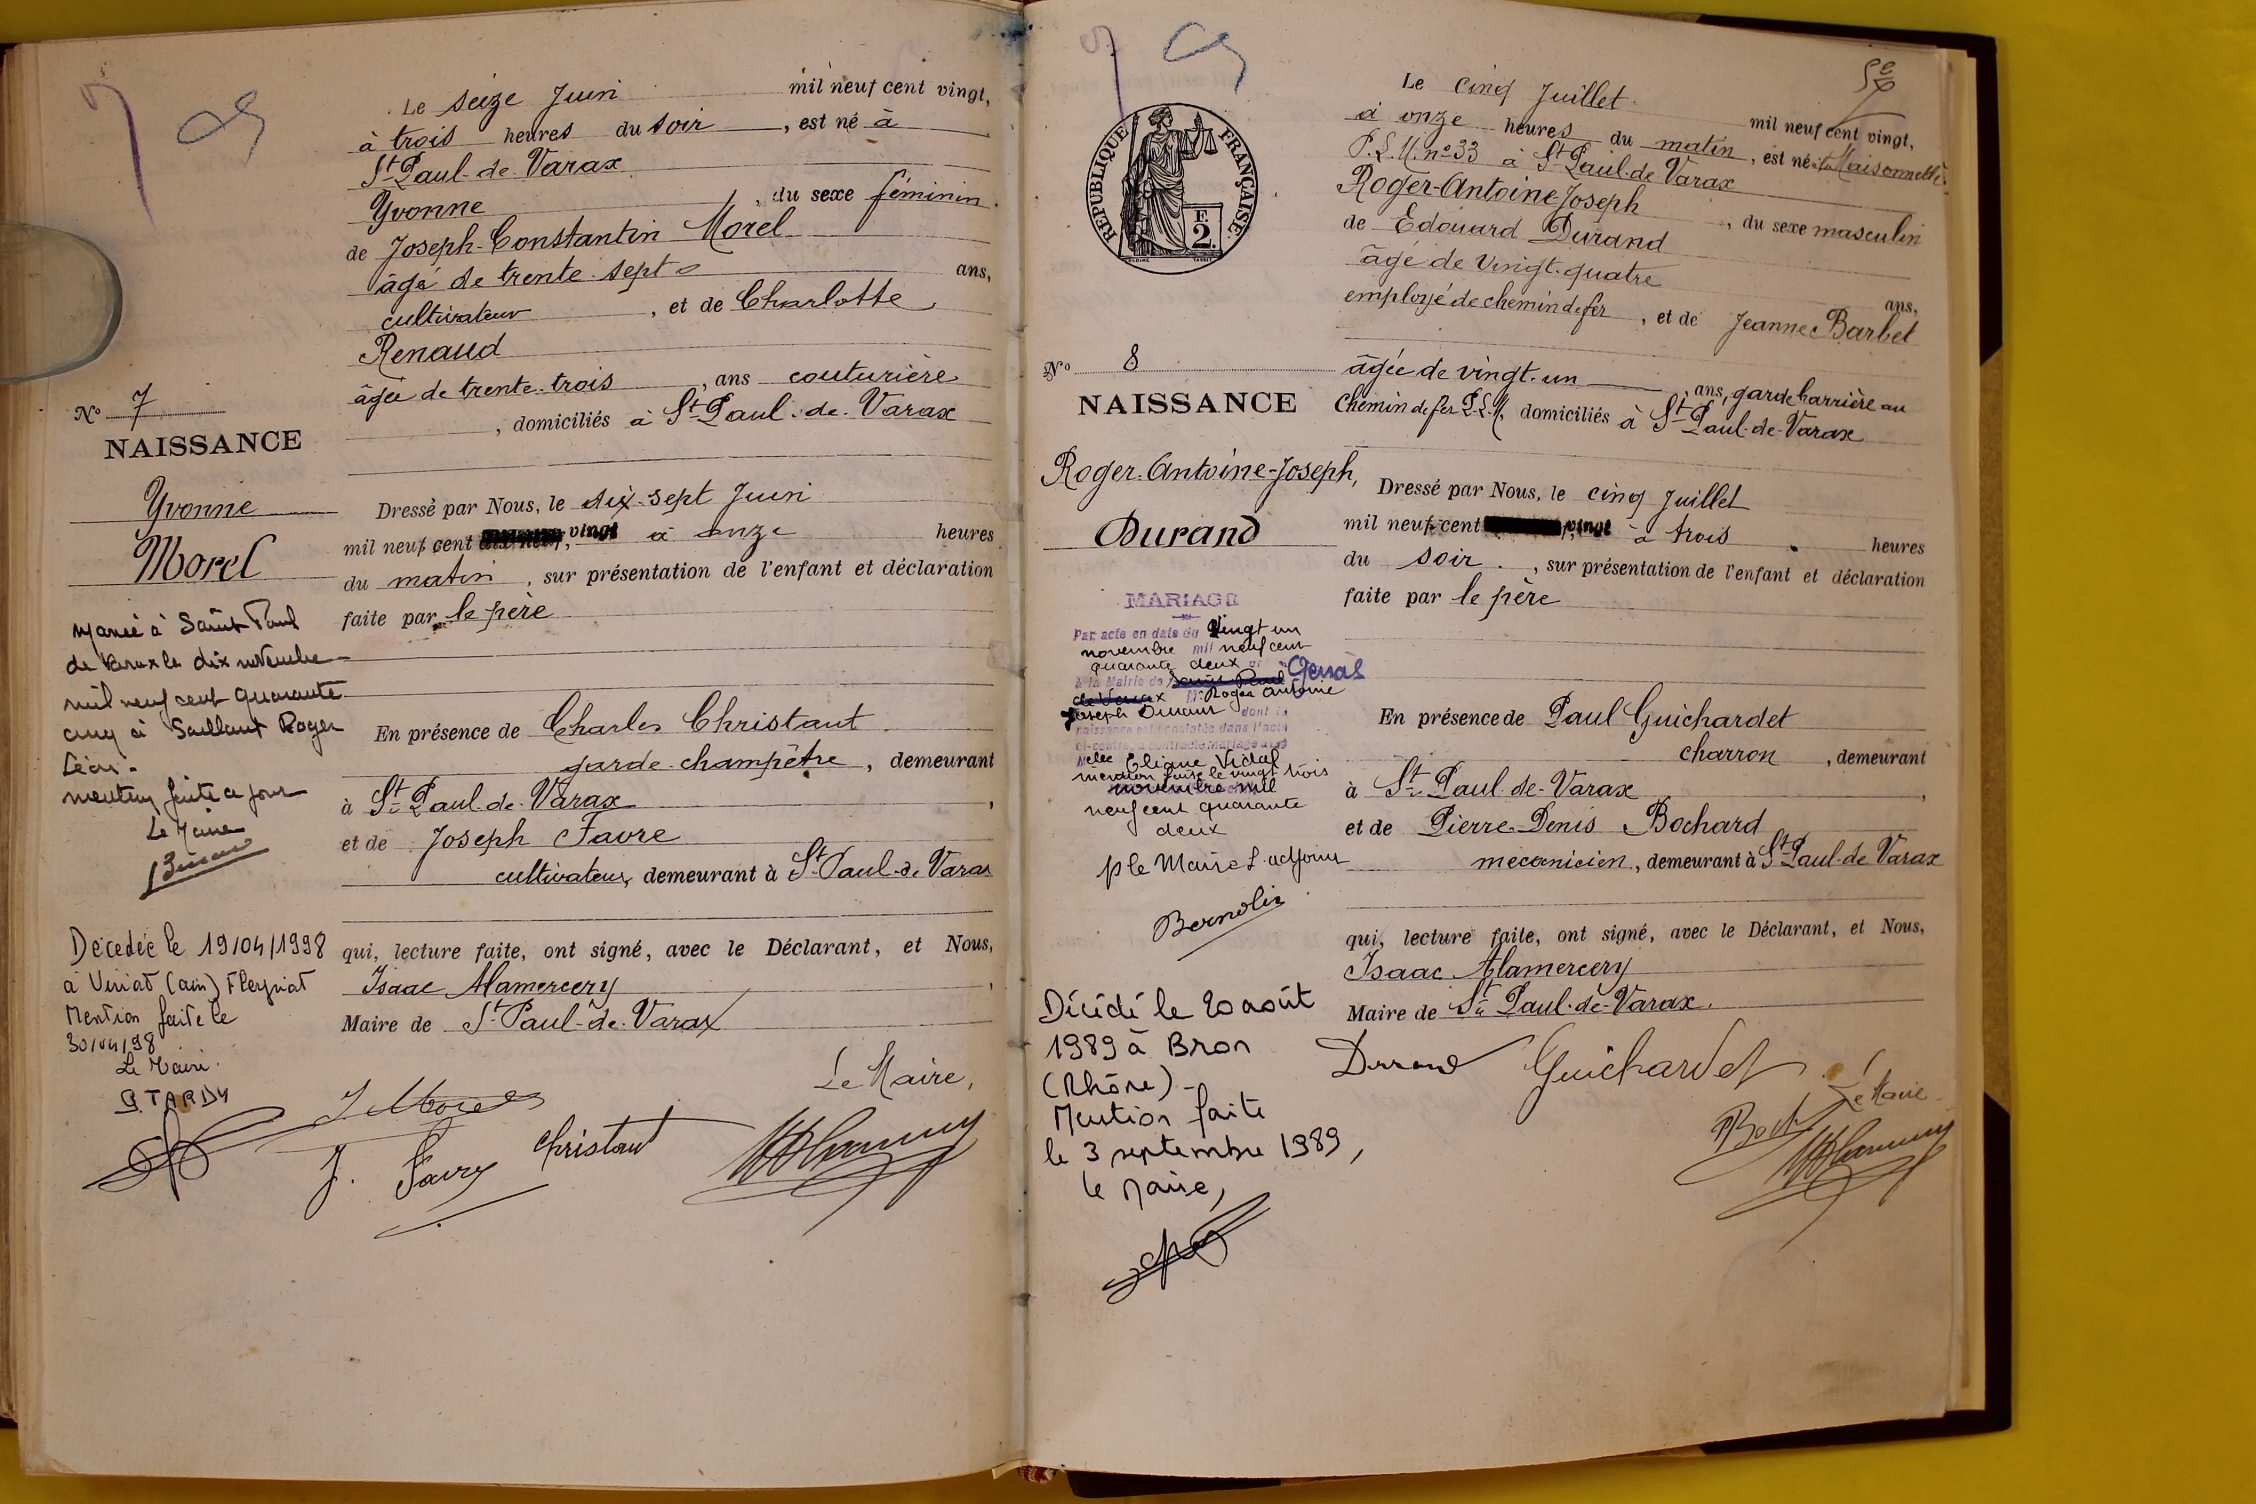 Le seize Juin mil neuf cent vingt,
à trois heures du soir, est né à
St Paul-de-Varax
Yvonne, du sexe féminin
de Joseph-Constantin Morel
âgé de trente-sept ans,
cultivateur, et de Charlotte
Renaud
âgée de trente-trois, ans couturière
, domiciliés à St Paul-de-Varax
No 7
NAISSANCE
Yvonne
Morel
Dressé par Nous, le dix-sept Juin
mil neuf cent vingt à onze heures
du matin, sur présentation de l'enfant et déclaration
faite par le père
En présence de Charles Christaut
garde-champêtre, demeurant
à St Paul-de-Varax,
et de Joseph Favre
cultivateur, demeurant à St Paul-de Varax
qui, lecture faite, ont signé, avec le Déclarant, et Nous,
Isaac Alamercery,
Maire de St Paul-de-Varax
Le Maire,
J Morel
J. Favre
Christaut
Mariée à Saint Paul
de Varax le dix novembre
mil neuf cent quarante
cinq à Saillant Roger
Léon.
mention faite ce jour
Le Maire
Décédée le 19/04/1998
à Viriat (ain) Fleyriat
Mention faite le
30/04/98
Le Maire.
G. TARDY
REPUBLIQUE FRANÇAISE
F.
2.
Le cinq Juillet mil neuf cent vingt,
à onze heures du matin, est né à la Maisonnette
P.L.M. no 33 à St Paul-de Varax
Roger-Antoine-Joseph, du sexe masculin
de Edouard Durand
âgé de vingt-quatre ans,
employé de chemin de fer, et de Jeanne Barbet
âgée de vingt-un, ans, garde barrière au
Chemin de fer P.L.M, domiciliés à St Paul-de-Varax
No 8
NAISSANCE
Roger-Antoine-Joseph,
Durand
Dressé par Nous, le cinq Juillet
mil neuf cent vingt à trois heures
du soir, sur présentation de l'enfant et déclaration
faite par le père
En présence de Paul Guichardet
charron, demeurant
à St Paul-de-Varax,
et de Pierre-Denis Bochard
mécanicien, demeurant à St Paul-de Varax
qui, lecture faite, ont signé, avec le Déclarant, et Nous,
Isaac Alamercery
Maire de St Paul-de-Varax.
Durand
Guichardet
Le Maire
MARIAGE
Par acte en date du Vingt un
novembre mil neuf cent
quarante deux
à la Mairie de Saint Paul
de Varax Mr Roger Antoine
Joseph Durand dont la
naissance est constatée dans l'acte
ci-contre, a contracté Mariage avec
Melle Eliane Vidal
mention faite le vingt trois
novembre mil
neuf cent quarante
deux
p le Maire L'adjoint
Décédé le 20 août
1989 à Bron
(Rhône)-
Mention faite
le 3 septembre 1989,
le Maire,